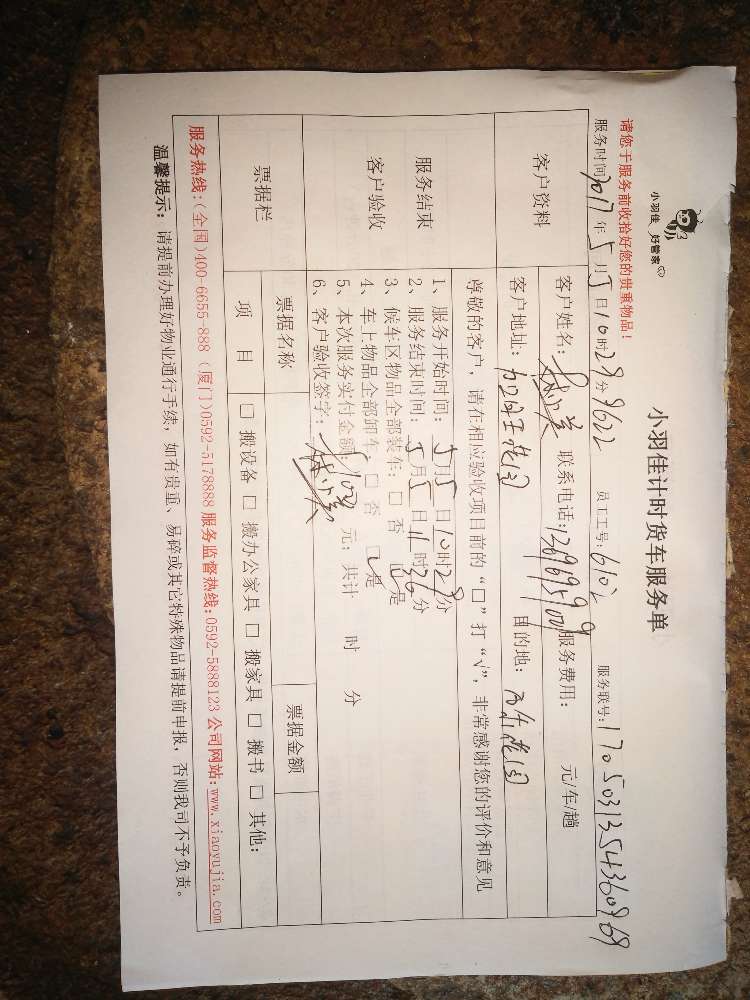 小羽佳 好管家
小羽佳计时货车服务单
请您于服务前收拾好您的贵重物品！
服务时间 2017 年 5 月 5 日 10 时 29 分 9622 员工工号: 6102 服务联号: 1705031354360969
客户资料
客户姓名： 联系电话: 服务费用： 元/年/趟
客户地址： 目的地：
尊敬的客户，请在相应验收项目前的“口”打“√”，非常感谢您的评价和意见
服务结束
客户验收
1、服务开始时间： 5 月 5 日 10 时 29 分
2、服务结束时间： 5 月 5 日 11 时 36 分
3、候车区物品全部装车：□ 否 □ 是
4、车上物品全部卸车：□ 否 □ 是
5、本次服务实付金额： 100 元；共计 时 分
6、客户验收签字：
票据栏
票据名称 票据金额
项 目 □ 搬设备 □ 搬办公家具 □ 搬家具 □ 搬书 □ 其他：
服务热线:(全国)400-6655-888 (厦门)0592-5178888 服务监督热线:0592-5888123 公司网站:www.xiaoyujia.com
温馨提示：请提前办理好物业通行手续，如有贵重、易碎或其它特殊物品请提前申报，否则我司不予负责。